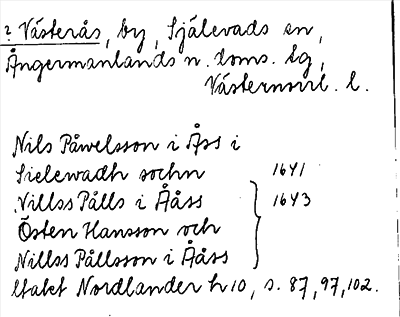 ? Västerås, by, Själevads sn,
Ångermanlands n. doms. tg,
Västernorrl. l.
Nils Påwelsson i Åss i
Sielewadh sochn 1641
Nillss Pålls i Ååss 1643
Östen Hansson och
Nillss Pållsson i Ååss
Utakt Nordlander h 10, s. 87, 97, 102.